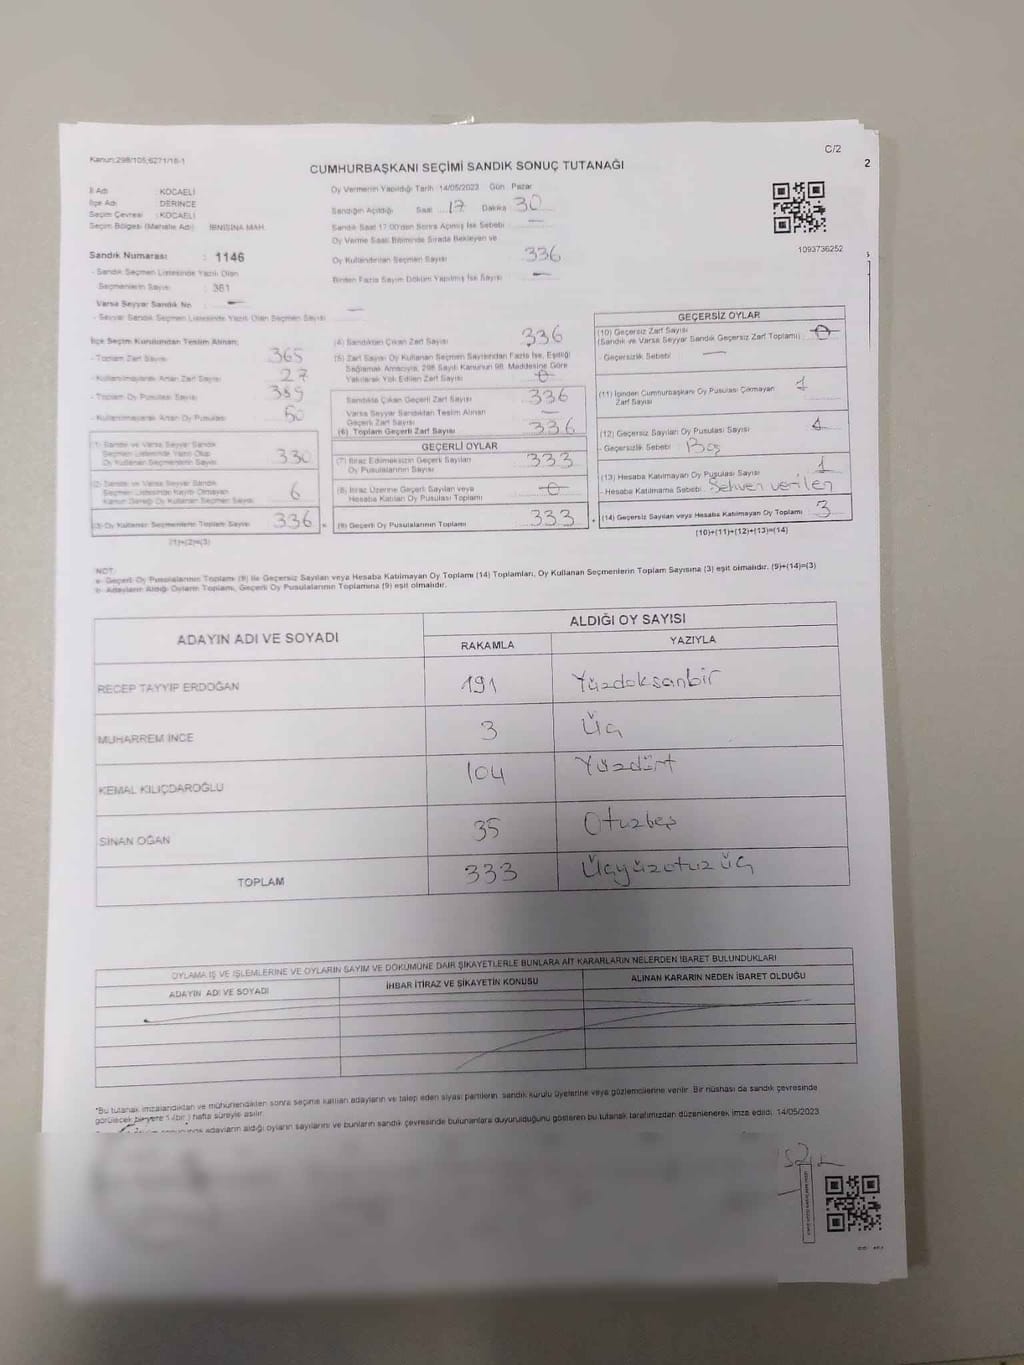 Kanun:298/105;6271/18-1
C/2
2
CUMHURBAŞKANI SEÇİMİ SANDIK SONUÇ TUTANAĞI
İl Adı : KOCAELİ
İlçe Adı : DERİNCE
Seçim Çevresi : KOCAELİ
Seçim Bölgesi (Mahalle Adı) : İBNİSİNA MAH.
Sandık Numarası : 1146
- Sandık Seçmen Listesinde Yazılı Olan
Seçmenlerin Sayısı : 361
Varsa Seyyar Sandık No : -
- Seyyar Sandık Seçmen Listesinde Yazılı Olan Seçmen Sayısı : -
Oy Vermenin Yapıldığı Tarih :14/05/2023 Gün : Pazar
Sandığın Açıldığı Saat 17 Dakika 30
Sandık Saat 17:00'den Sonra Açılmış İse Sebebi -
Oy Verme Saati Bitiminde Sırada Bekleyen ve
Oy Kullandırılan Seçmen Sayısı 336
Birden Fazla Sayım Döküm Yapılmış İse Sayısı -
1093736252
İlçe Seçim Kurulundan Teslim Alınan;
- Toplam Zarf Sayısı 365
- Kullanılmayarak Artan Zarf Sayısı 27
- Toplam Oy Pusulası Sayısı
- Kullanılmayarak Artan Oy Pusulası
(1) Sandık ve Varsa Seyyar Sandık
Seçmen Listesinde Yazılı Olup
Oy Kullanan Seçmenlerin Sayısı 330
(2) Sandık ve Varsa Seyyar Sandık
Seçmen Listesinde Kayıtlı Olmayan
Kanun Gereği Oy Kullanan Seçmen Sayısı 6
(3) Oy Kullanan Seçmenlerin Toplam Sayısı 336
(1)+(2)=(3)
(4) Sandıktan Çıkan Zarf Sayısı 336
(5) Zarf Sayısı Oy Kullanan Seçmen Sayısından Fazla İse, Eşitliği
Sağlamak Amacıyla, 298 Sayılı Kanunun 98. Maddesine Göre
Yakılarak Yok Edilen Zarf Sayısı 0
Sandıkta Çıkan Geçerli Zarf Sayısı 336
Varsa Seyyar Sandıktan Teslim Alınan
Geçerli Zarf Sayısı -
(6) Toplam Geçerli Zarf Sayısı 336
GEÇERLİ OYLAR
(7) İtiraz Edilmeksizin Geçerli Sayılan
Oy Pusulalarının Sayısı 333
(8) İtiraz Üzerine Geçerli Sayılan veya
Hesaba Katılan Oy Pusulası Toplamı 0
(9) Geçerli Oy Pusulalarının Toplamı 333
GEÇERSİZ OYLAR
(10) Geçersiz Zarf Sayısı
(Sandık ve Varsa Seyyar Sandık Geçersiz Zarf Toplamı) 0
- Geçersizlik Sebebi : -
(11) İçinden Cumhurbaşkanı Oy Pusulası Çıkmayan
Zarf Sayısı 1
(12) Geçersiz Sayılan Oy Pusulası Sayısı
- Geçersizlik Sebebi : Boş
(13) Hesaba Katılmayan Oy Pusulası Sayısı 1
- Hesaba Katılmama Sebebi: Sehven verilen
(14) Geçersiz Sayılan veya Hesaba Katılmayan Oy Toplamı 3
(10)+(11)+(12)+(13)=(14)
NOT:
a- Geçerli Oy Pusulalarının Toplamı (9) ile Geçersiz Sayılan veya Hesaba Katılmayan Oy Toplamı (14) Toplamları, Oy Kullanan Seçmenlerin Toplam Sayısına (3) eşit olmalıdır. (9)+(14)=(3)
b- Adayların Aldığı Oyların Toplamı, Geçerli Oy Pusulalarının Toplamına (9) eşit olmalıdır.
ADAYIN ADI VE SOYADI
ALDIĞI OY SAYISI
RAKAMLA YAZIYLA
RECEP TAYYİP ERDOĞAN 191 Yüzdoksanbir
MUHARREM İNCE 3 Üç
KEMAL KILIÇDAROĞLU 104 Yüzdört
SİNAN OĞAN 35 Otuzbeş
TOPLAM 333 Üçyüzotuzüç
OYLAMA İŞ VE İŞLEMLERİNE VE OYLARIN SAYIM VE DÖKÜMÜNE DAİR ŞİKAYETLERLE BUNLARA AİT KARARLARIN NELERDEN İBARET BULUNDUKLARI
ADAYIN ADI VE SOYADI İHBAR İTİRAZ VE ŞİKAYETİN KONUSU ALINAN KARARIN NEDEN İBARET OLDUĞU
*Bu tutanak imzalandıktan ve mühürlendikten sonra seçime katılan adayların ve talep eden siyasi partilerin sandık kurulu üyelerine veya gözlemcilerine verilir. Bir nüshası da sandık çevresinde
görülecek bir yere 1 (bir) hafta süreyle asılır.
adayların aldığı oyların sayılarını ve bunların sandık çevresinde bulunanlara duyurulduğunu gösteren bu tutanak tarafımızdan düzenlenerek imza edildi. 14/05/2023